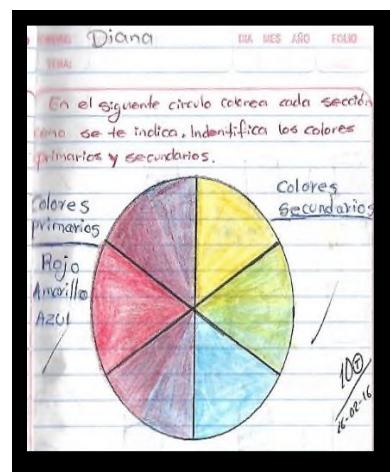 NOMBRE Diana DIA MES AÑO FOLIO
TEMA:
En el siguiente circulo colorea cada sección
como se te indica. Indentifica los colores
primarios y secundarios.
Colores
primarios
Rojo
Amarillo
AZUL
Colores
Secundarios
10
16-02-16